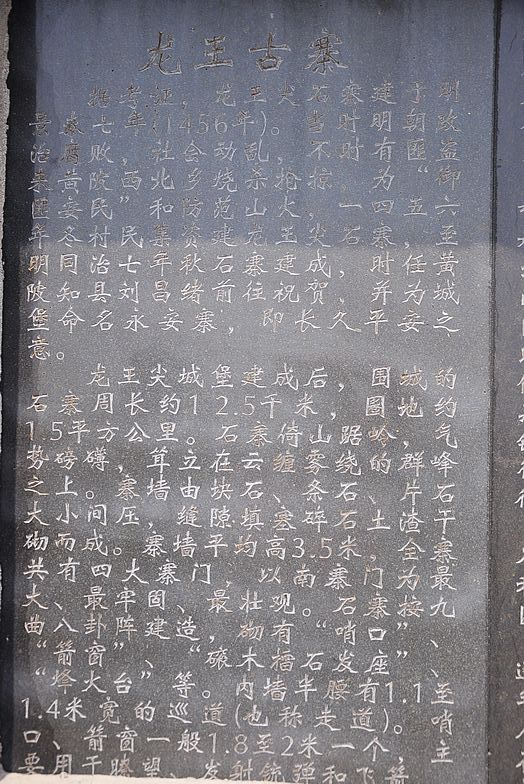 龙王古寨
据考证,龙王尖石寨建于明
景泰七年(1456年)。当时明朝政
治腐败,社会动乱,不时有匪盗
来黄陂西北乡烧杀、抢掠,为“御
匪安民”和防范山火,一四五六
年冬村民集资建龙王尖石寨,至
明同治士年秋石寨建成,时任黄
陂知县刘昌绪前往祝贺,并为城
堡命名永安寨,即长久平安之
意。
龙王尖城堡建成后,围城的
石寨周长约12.5千米,圈地约
1.5平方公里。石寨倚山踞岭,气
势磅礴,耸立在云雾缠绕的群峰
之上。寨墙由块石、条石、片石
大小间压。缝隙填塞碎石土渣干
砌而成,寨墙平均高3.5米,全寨
共有四大寨门,以南寨门为最
大、最牢固、最壮观。石寨按“九
曲八卦阵”建造,砌有“哨口”、
“箭窗”、“礌木槽”、“石发座”、
“烽火台”等。内墙半腰有1.1至
1.4米宽的巡道(也称走道)。哨
口、箭窗一般1.8至2米一个,主
要用